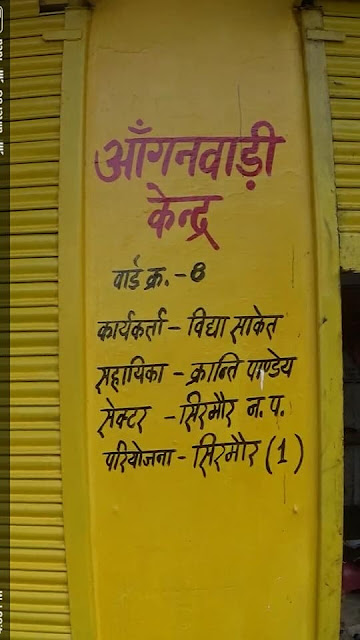 आँगनवाड़ी
केन्द्र
वार्ड क्र. - 8
कार्यकर्ता - विद्या साकेत
सहायिका - क्रान्ति पाण्डेय
सेक्टर - सिरमौर न. प.
परियोजना - सिरमौर (1)